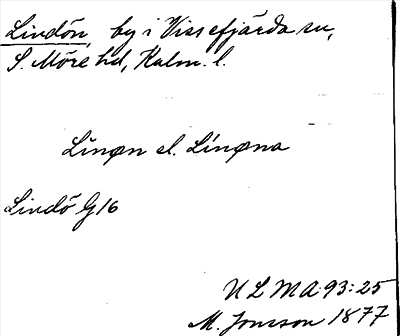 Lindön, by i Vissefjärda sn,
S. Möre hd, Kalm. l.
Linøn el. Linøna
Lindö G16
ULMA 93:25
M. Jonsson 1877